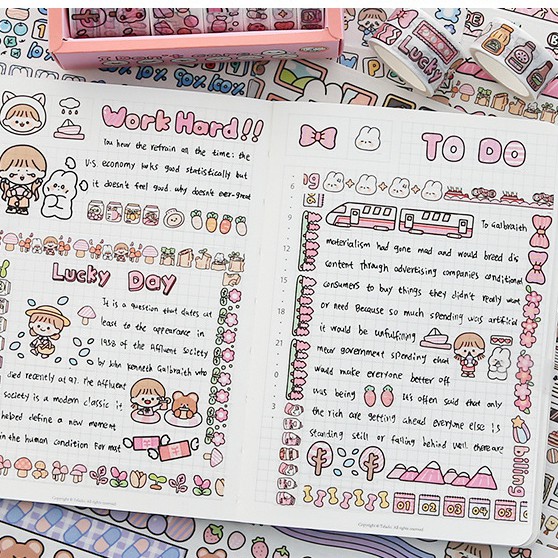 Work Hard!!
You how the refrain all the time: the
U.S. economy looks good statistically but
it doesn't feel good. why doesn't ever-great
Lucky Day
It is a question that dates at
least to the appearance in
1958 of the Affluent Society
by John Kenneth Galbraith who
died recently at 97. The Affluent
Society is a modern classic it
helped define a new moment
in the human condition For mat
TO DO
To Galbraith
materialism had gone mad and would breed dis
content Through advertising companies conditional
consumers to buy things they didn't really want
or need Because so much spending was artificial
it would be unfulfilling
mean government spending that
would make everyone better off
was being It's often said that only
the rich are getting ahead everyone else is
standing still or falling behind well there are
6
9
12
15
18
21
0
3
01 02 03 03
billing
Lucky